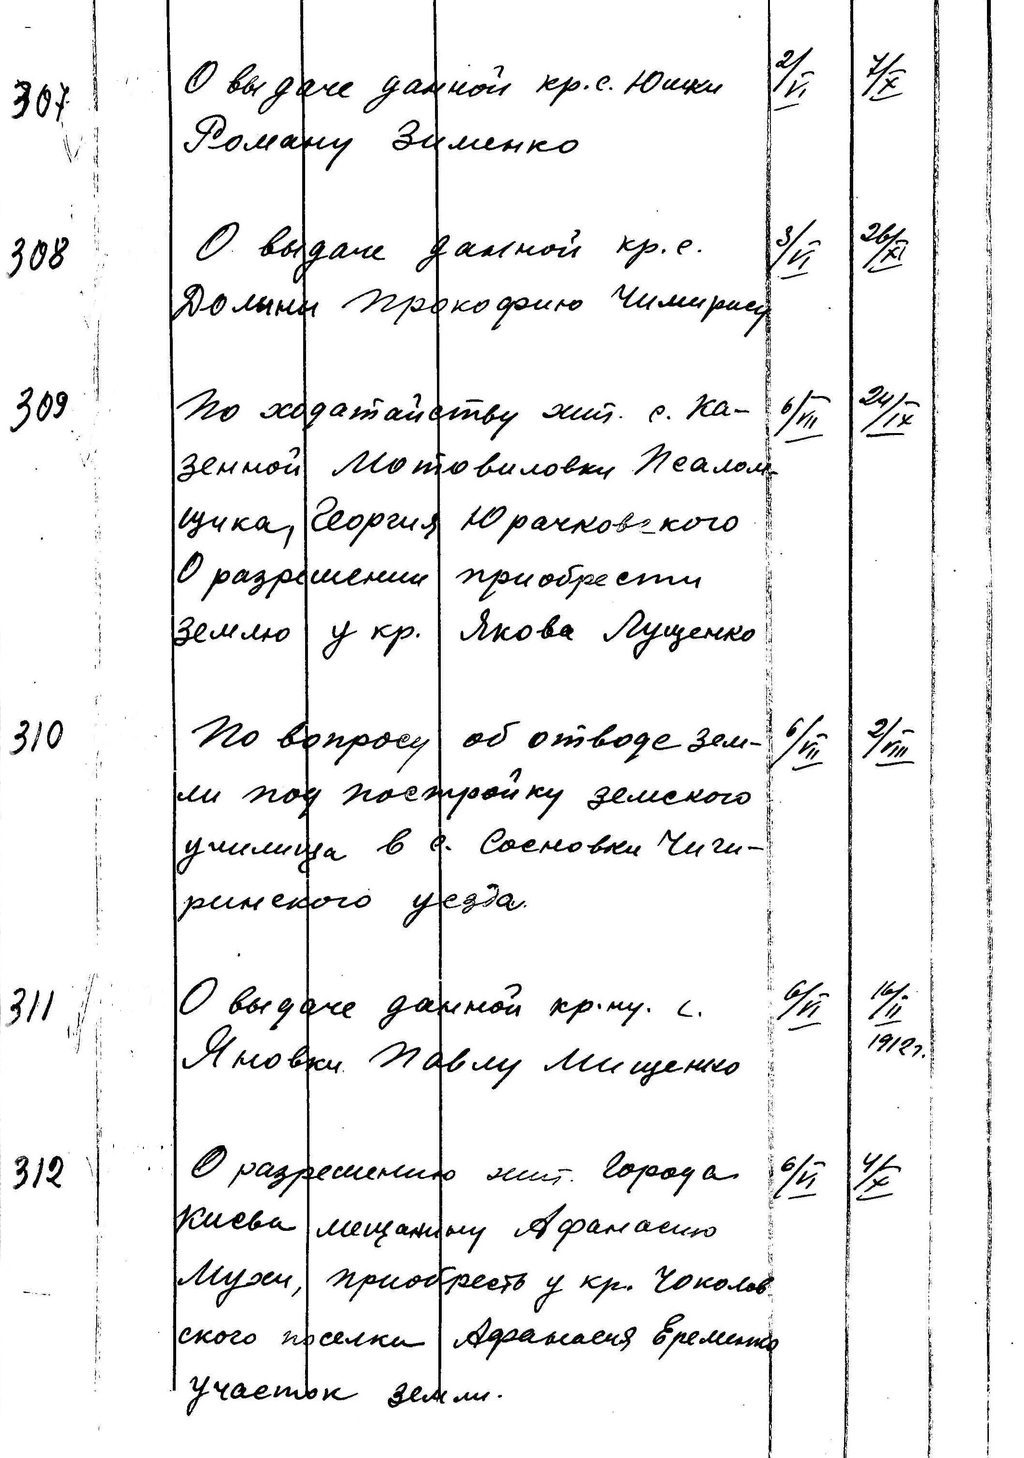 307 О выдаче данной кр. с. Юшки 2/VI 7/X
Роману Зименко
308 О выдаче данной кр. с. 3/VI 26/XI
Долины Прокофию Чимирису
309 По ходатайству жит. с. Ка- 6/VII 24/IX
зенной Мотовиловки Псалом-
щика, Георгия Юрачковского
О разрешении приобрести
землю у кр. Якова Лущенко
310 По вопросу об отводе зем- 6/VII 2/VIII
ли под постройку земского
училища в с. Сосновки Чиги-
ринского уезда.
311 О выдаче данной кр-ну. с. 6/VI 16/II
Яновки Павлу Мищенко 1912г.
312 О разрешению жит. города 6/VI 4/X
Киева мещанину Афанасию
Мухи, приобресть у кр. Чоколов
ского поселка Афанасия Еременко
участок земли.